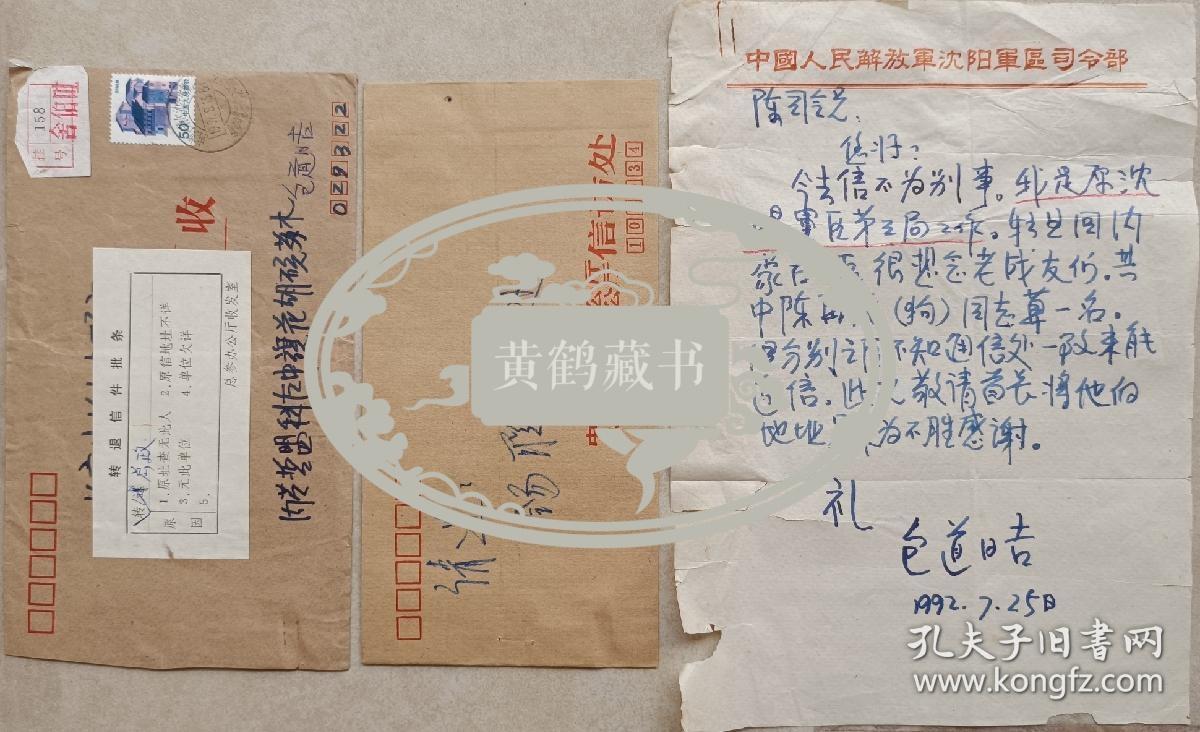 挂号
158
舍伯吐
50
收
包道吉
029322
内蒙哲盟科左中旗花胡硕苏木
转退信件批条
转 总政
原因
1.原址查无此人 2.原信地址不详
3.无此单位 4.单位欠详
5.
总参办公厅收发室
信访处
100034
请
中國人民解放軍沈阳軍區司令部
陈司令员.
您好:
今去信不为别事。我是原沈
軍区第三局工作。转业回内
蒙 很想念老战友们。其
中陈 (狗)同志 一名。
分别 不知通信处一致未能
通信。此 敬请首长将他的
地址 为不胜感谢。
礼
包道吉
1992.7.25日
黄鹤藏书
孔夫子旧书网
www.kongfz.com